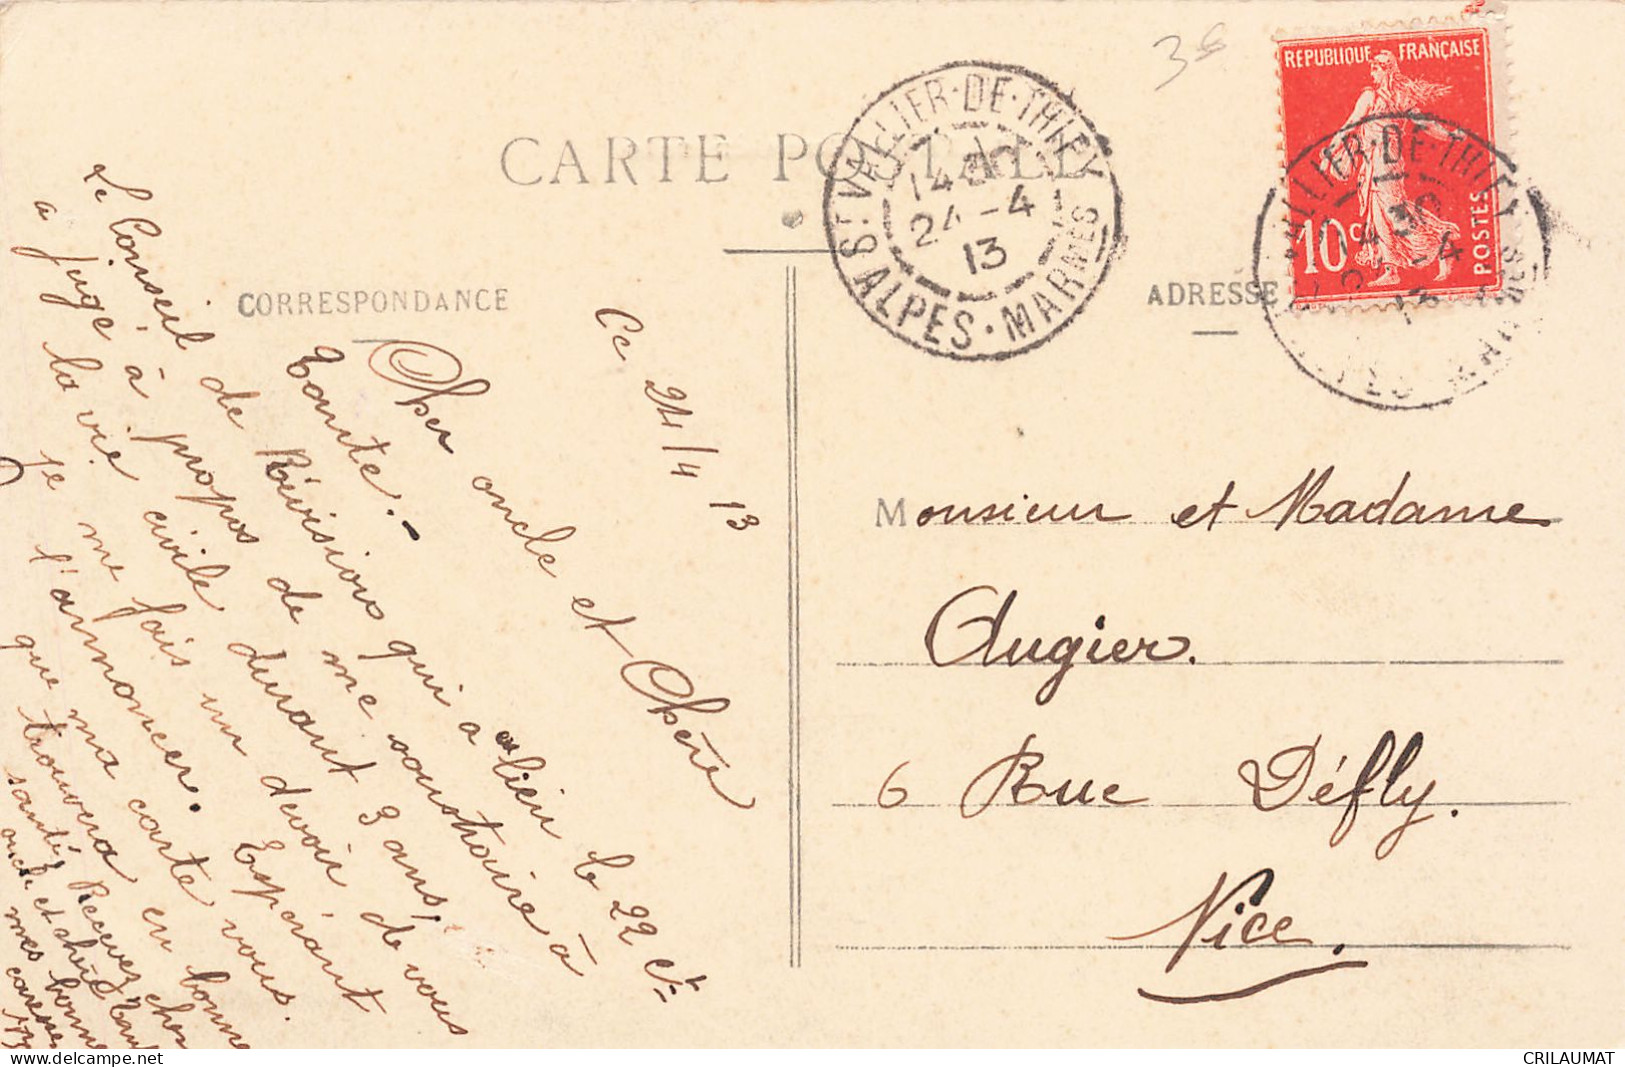 CARTE POSTALE
CORRESPONDANCE
ADRESSE
ST VALLIER-DE-THIEY
14 30
24 -4
13
ALPES-MARMES
REPUBLIQUE FRANÇAISE
10c
POSTES
36
Ce 24/4 13
Cher oncle et Chère
tante.-
Le Conseil de Révision qui a eu lieu le 22 ct
a jugé à propos de me soustraire à
la vie civile durant 3 ans,
je me fais un devoir de vous
l'annoncer. Espérant
que ma carte vous
trouvera en bonne
santé, Recevez cher
oncle et chère
mes bonnes
Monsieur et Madame
Augier.
6 Rue Défly.
Nice.
delcampe.net
CRILAUMAT